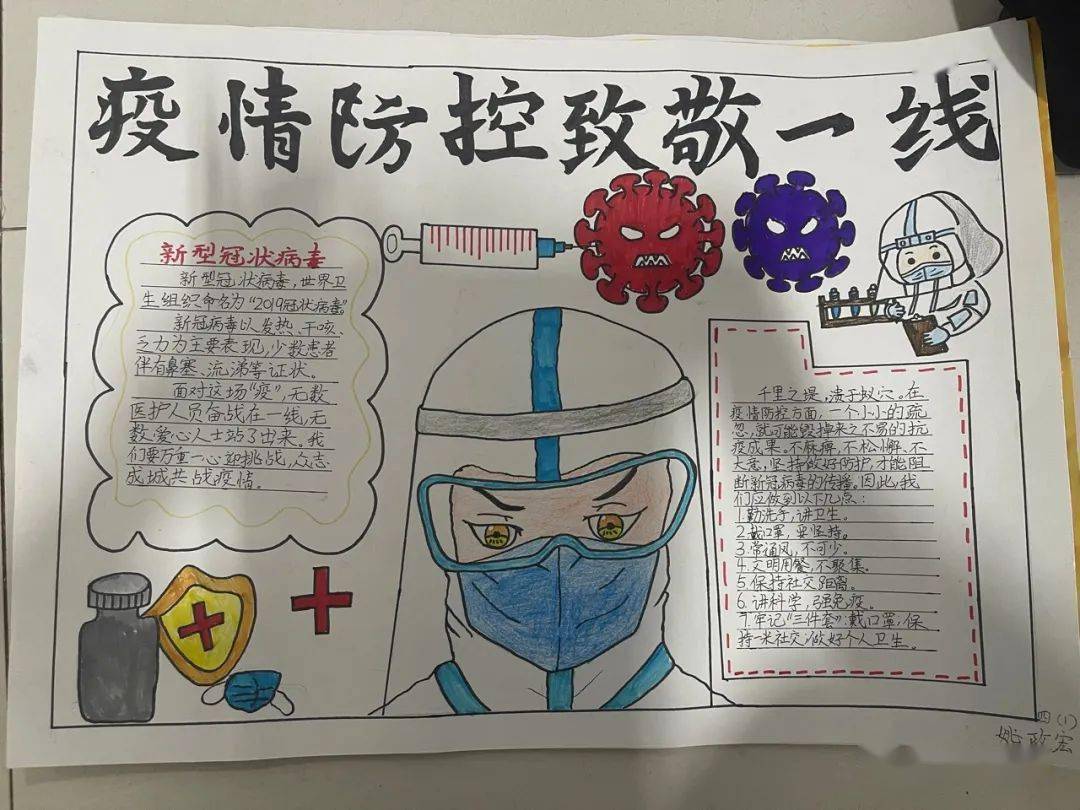 疫情防控致敬一线
新型冠状病毒
新型冠状病毒,世界卫
生组织命名为“2019冠状病毒”。
新冠病毒以发热、干咳、
乏力为主要表现,少数患者
伴有鼻塞、流涕等证状。
面对这场“疫”,无数
医护人员奋战在一线,无
数爱心人士站了出来。我
们要万重一心迎挑战,众志
成城共战疫情。
千里之堤,溃于蚁穴。在
疫情防控方面,一个小小的疏
忽,就可能毁掉来之不易的抗
疫成果。不麻痹,不松懈、不
大意,坚持做好防护,才能阻
断新冠病毒的传播。因此,我
们应做到以下几点:
1.勤洗手,讲卫生。
2.戴口罩,要坚持。
3.常通风,不可少。
4.文明用餐,不聚集。
5.保持社交距离。
6.讲科学,强免疫。
7.牢记“三件套”:戴口罩,保
持一米社交,做好个人卫生。
四(1)
姚政宏